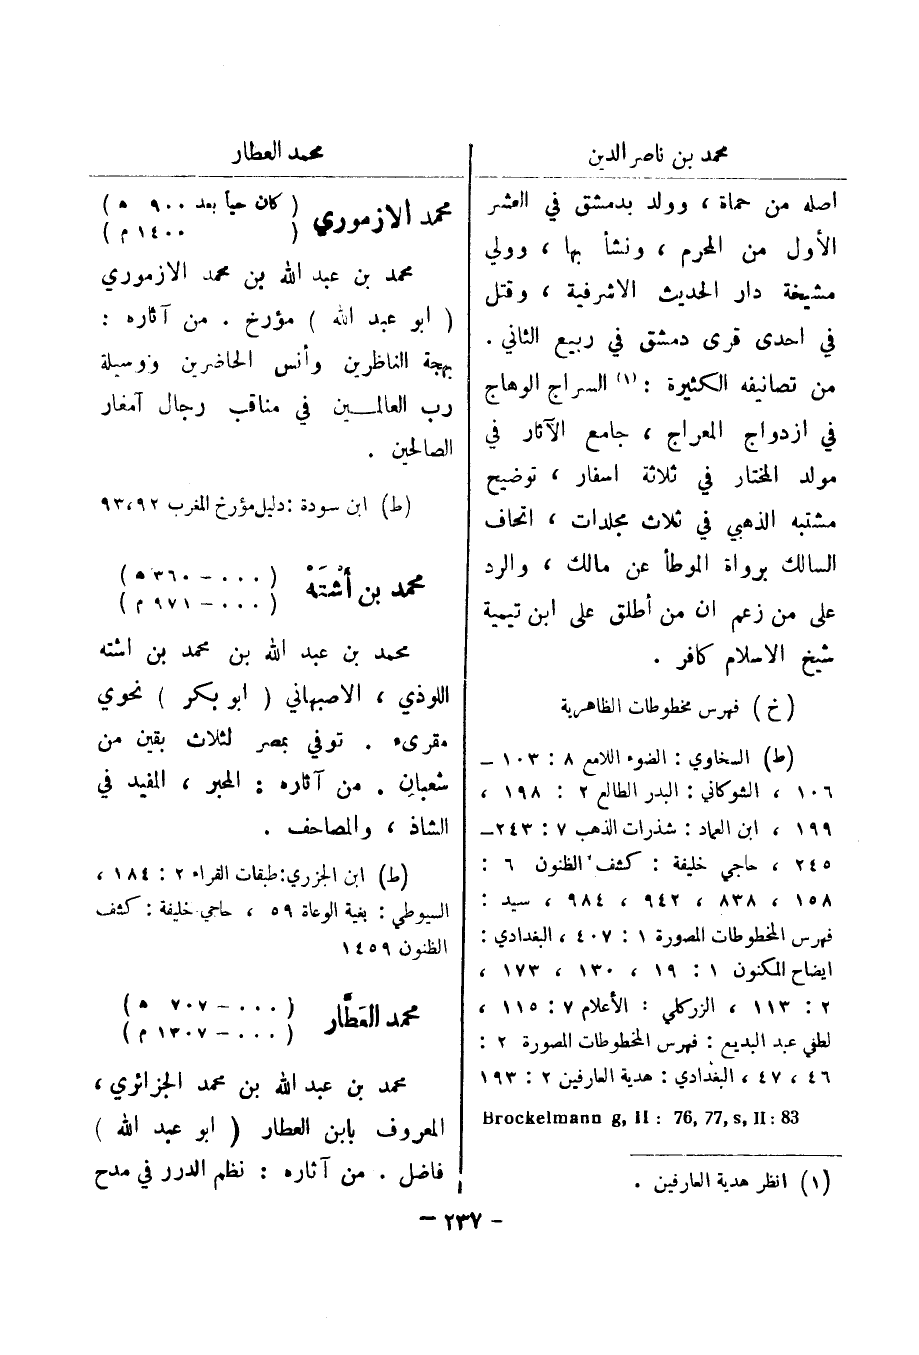 محمد بن ناصر الدين
اصله من حماة ، وولد بدمشق في العشر
الأول من المحرم ، ونشأ بها ، وولي
مشيخة دار الحديث الاشرفية ، وقتل
في احدى قرى دمشق في ربيع الثاني .
من تصانيفه الكثيرة : (١) السراج الوهاج
في ازدواج المعراج ، جامع الآثار في
مولد المختار في ثلاثة اسفار ، توضيح
مشتبه الذهبي في ثلاث مجلدات ، اتحاف
السالك برواة الموطأ عن مالك ، والرد
على من زعم ان من أطلق على ابن تيمية
شيخ الاسلام كافر .
(خ) فهرس مخطوطات الظاهرية
(ط) السخاوي : الضوء اللامع ٨ : ١٠٣ –
١٠٦ ، الشوكاني : البدر الطالع ٢ : ١٩٨ ،
١٩٩ ، ابن العماد : شذرات الذهب ٧ : ٢٤٣–
٢٤٥ ، حاجي خليفة : كشف الظنون ٦ :
١٥٨ ، ٨٣٨ ، ٩٤٢ ، ٩٨٤ ، سيد :
فهرس المخطوطات المصورة ١ : ٤٠٧ ، البغدادي :
ايضاح المكنون ١ : ١٩ ، ١٣٠ ، ١٧٣ ،
٢ : ١١٣ ، الزركلي : الأعلام ٧ : ١١٥ ،
لطفي عبد البديع : فهرس المخطوطات المصورة ٢ :
٤٦ ، ٤٧ ، البغدادي : هدية العارفين ٢ : ١٩٣
Brockelmann g, II : 76, 77, s, II : 83
(١) انظر هدية العارفين .
محمد العطار
محمد الازموري ( كان حياً بعد ٩٠٠ ه )
( ١٤٠٠ م )
محمد بن عبد الله بن محمد الازموري
( ابو عبد الله ) مؤرخ . من آثاره :
بهجة الناظرين وأنس الحاضرين ووسيلة
رب العالمـــين في مناقب رجال آمغار
الصالحين .
(ط) ابن سودة : دليل مؤرخ المغرب ٩٢،٩٣
محمد بن أشْتَهْ ( ٠٠٠ – ٣٦٠ ه )
( ٠٠٠ – ٩٧١ م )
محمد بن عبد الله بن محمد بن اشته
اللوذي ، الاصبهاني ( ابو بكر ) نحوي
مقرىء . توفي بمصر لثلاث بقين من
شعبان . من آثاره : المحبر ، المفيد في
الشاذ ، والمصاحف .
(ط) ابن الجزري : طبقات القراء ٢ : ١٨٤ ،
السيوطي : بغية الوعاة ٥٩ ، حاجي خليفة : كشف
الظنون ١٤٥٩
محمد العَطَّار ( ٠٠٠ – ٧٠٧ ه )
( ٠٠٠ – ١٣٠٧ م )
محمد بن عبد الله بن محمد الجزائري ،
المعروف بابن العطار ( ابو عبد الله )
فاضل . من آثاره : نظم الدرر في مدح
– ٢٣٧ –